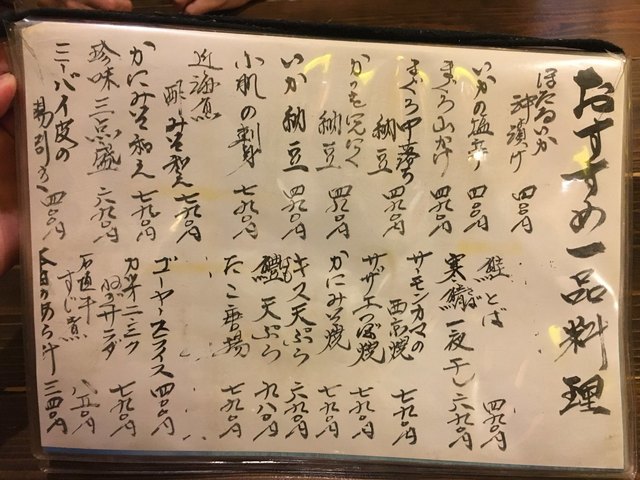 おすすめ一品料理
ほたるいか
沖漬け 四八〇円
いかの塩辛 四八〇円
まぐろ山かけ 四九〇円
まぐろ中落ち
納豆 四九〇円
かつを にんにく
納豆 四九〇円
いか納豆 四九〇円
小肌の刺身 七九〇円
近海魚
酢みそ和え 七九〇円
かにみそ和え 七九〇円
珍味三点盛 六九〇円
ミーバイ皮の
湯引き 四八〇円
鮭とば 四九〇円
寒鯖一夜干し 六九〇円
サーモンカマの
西京焼 七九〇円
サザエつぼ焼 七九〇円
かにみそ焼 七九〇円
キス天ぷら 六九〇円
鱧天ぷら 九八〇円
たこ唐揚 七九〇円
ゴーヤースライス 四八〇円
ガーリック
サンダ 七九〇円
石垣牛
すじ煮 八五〇円
本日のあら汁 三四〇円